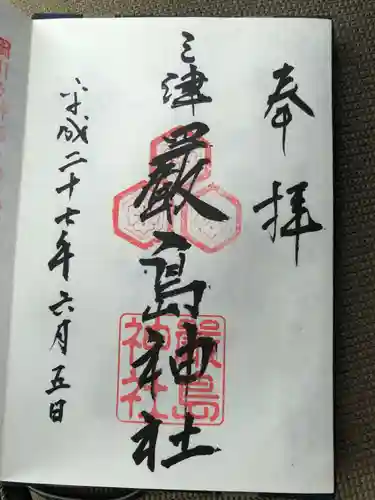 奉拝
三津
厳島神社
平成二十七年六月五日
嚴島
神社